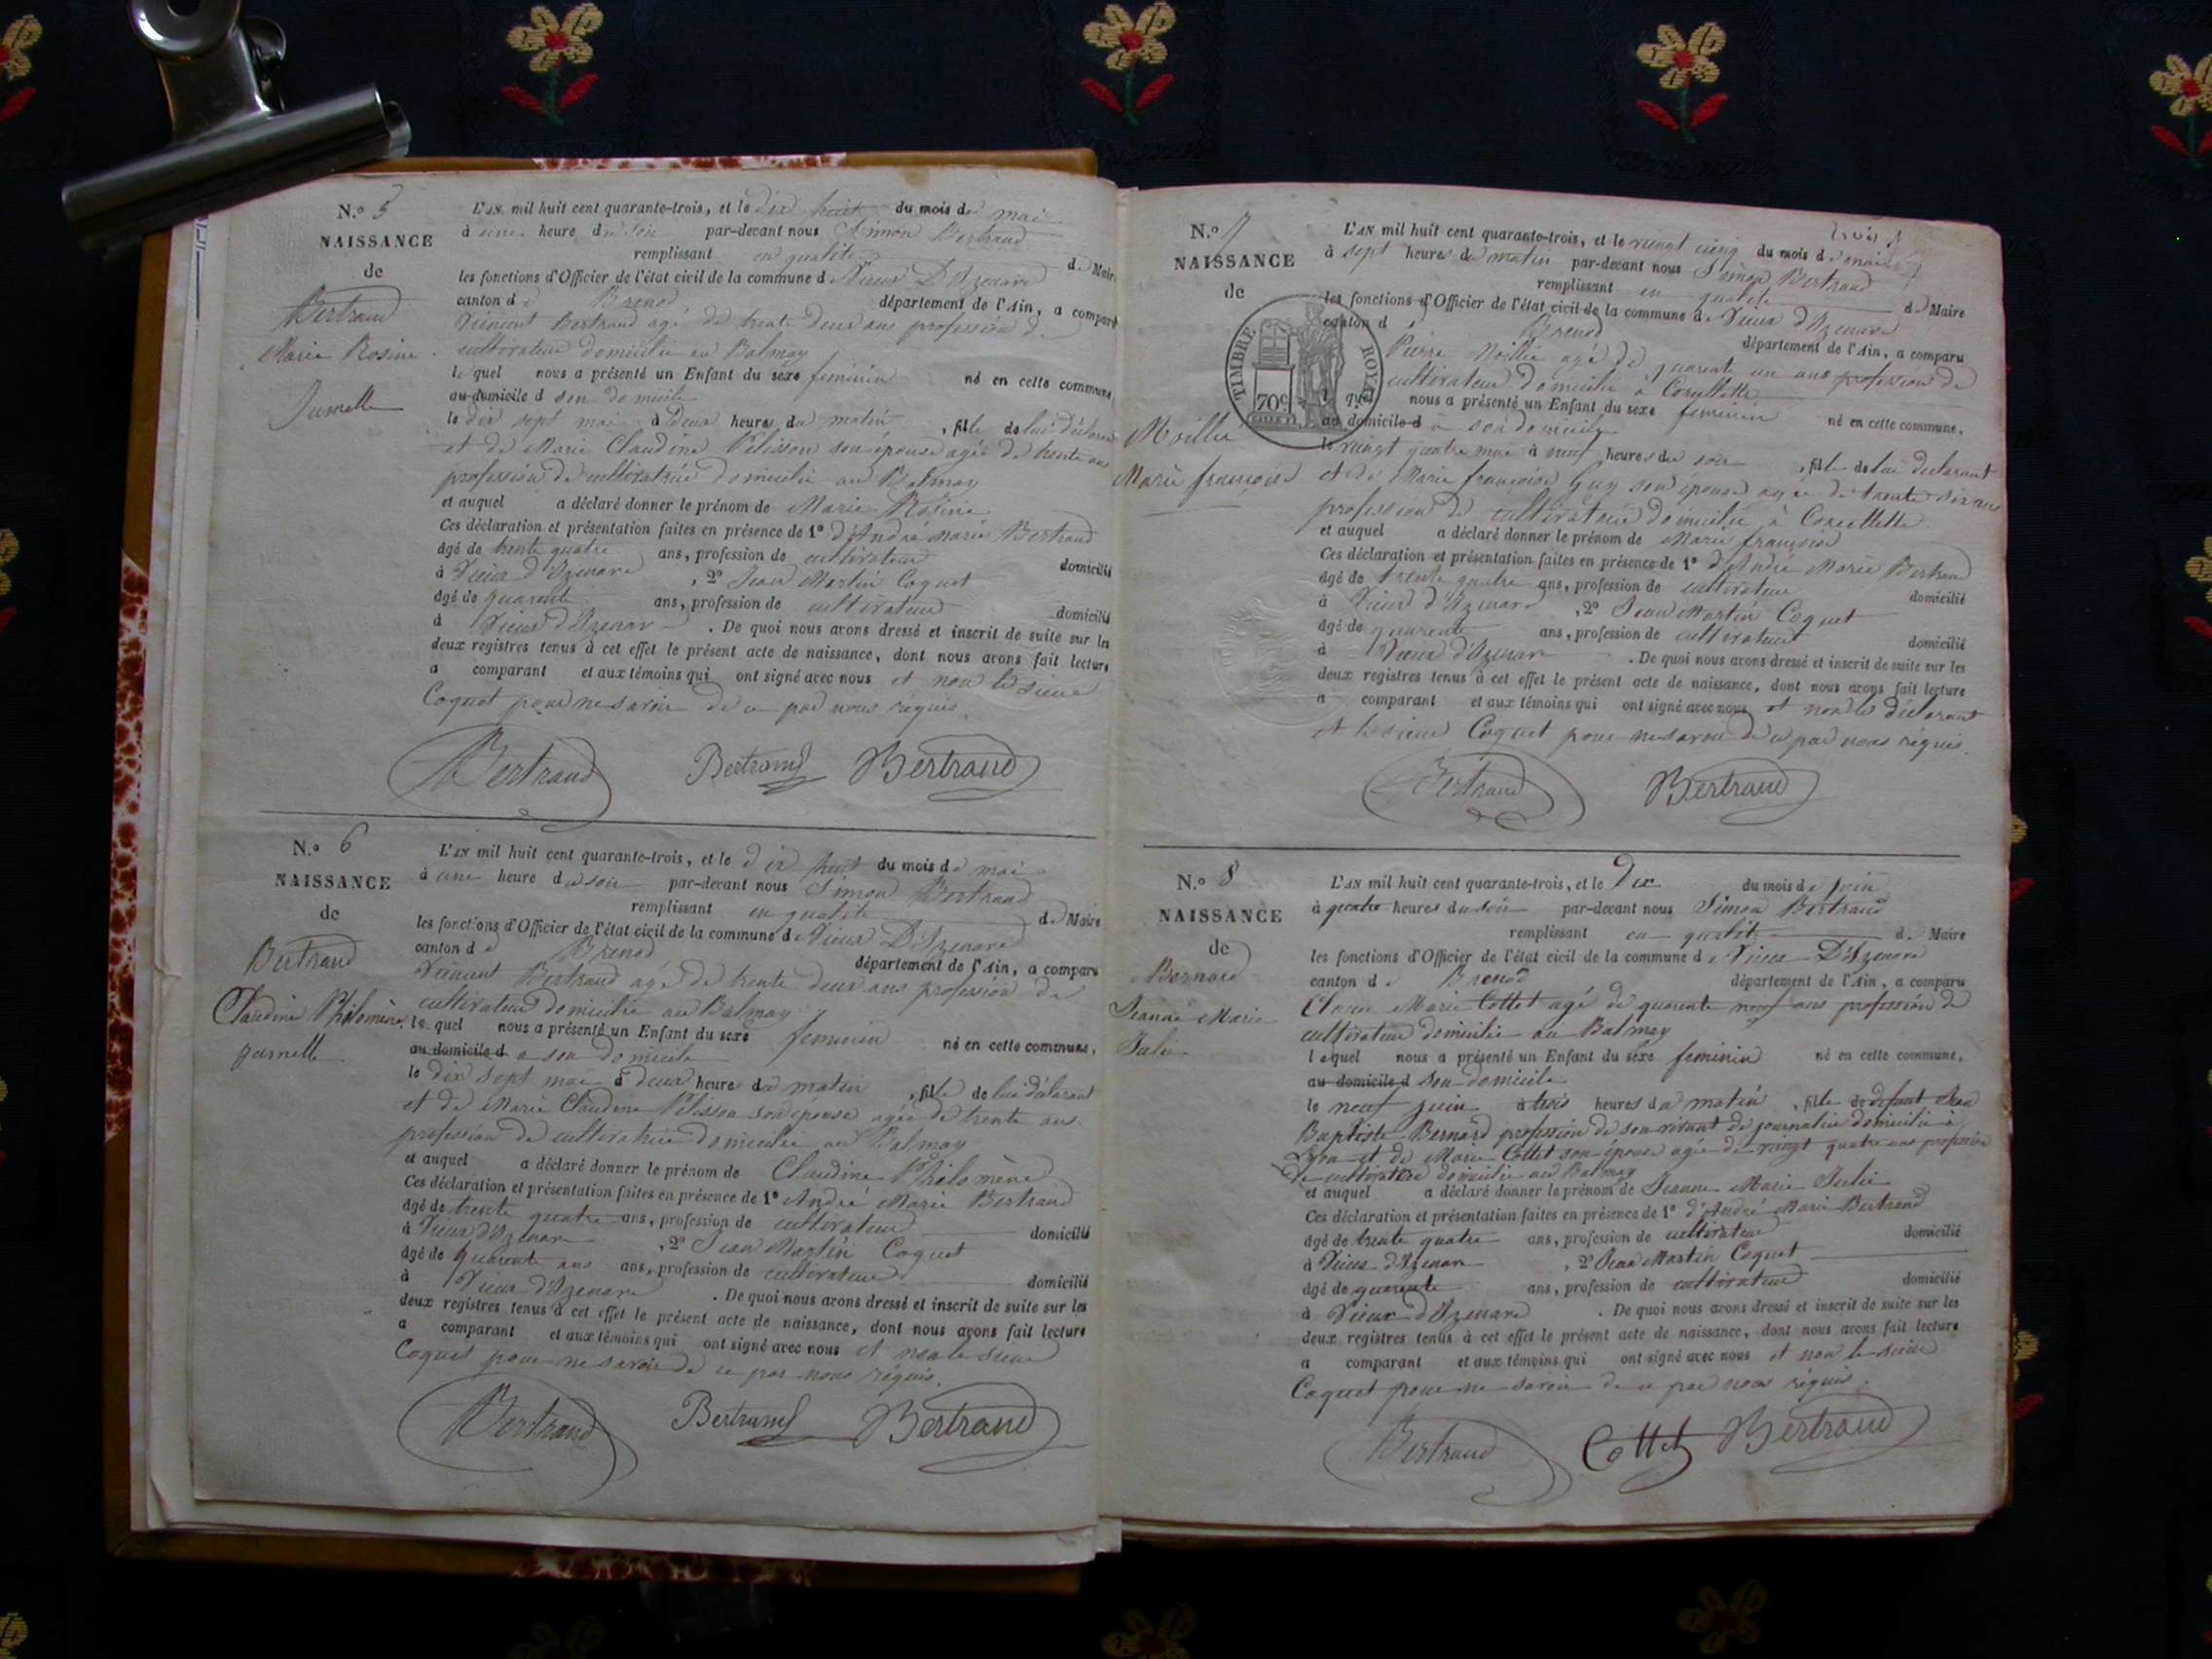 N.o 5
NAISSANCE
de
Bertrand
Marie Rosine
Jumelle
L'AN mil huit cent quarante-trois, et le dix huit du mois de mai
à une heure du soir par-devant nous Simon Bertrand
remplissant en qualité de Maire
les fonctions d'Officier de l'état civil de la commune de Vieux D'Izenave
canton de Brenod département de l'Ain, a comparu
Vincent Bertrand agé de trente deux ans profession de
cultivateur domicilié au Balmay
le quel nous a présenté un Enfant du sexe feminin né en cette commune
au domicile d son domicile
le dix sept mai à deux heures du matin, fille de lui déclarant
et de Marie Claudine Pélisson son épouse agée de trente ans
profession de cultivatrice domiciliée au Balmay
et auquel a déclaré donner le prénom de Marie Rosine
Ces déclaration et présentation faites en présence de 1° d'André Marie Bertrand
âgé de trente quatre ans, profession de cultivateur domicilié
à Vieux d'Izenave, 2° Jean Martin Coquet
âgé de quarente ans, profession de cultivateur domicilié
à Vieux d'Izenave. De quoi nous avons dressé et inscrit de suite sur les
deux registres tenus à cet effet le présent acte de naissance, dont nous avons fait lecture
a comparant et aux témoins qui ont signé avec nous et non le sieur
Coquet pour ne savoir de ce par nous réquis.
Bertrand Bertrand Bertrand
N.o 6
NAISSANCE
de
Bertrand
Claudine Philomène
jumelle
L'AN mil huit cent quarante-trois, et le dix huit du mois de mai
à une heure du soir par-devant nous Simon Bertrand
remplissant en qualité de Maire
les fonctions d'Officier de l'état civil de la commune de Vieux D'Izenave
canton de Brenod département de l'Ain, a comparu
Vincent Bertrand agé de trente deux ans profession de
cultivateur domicilié au Balmay
le quel nous a présenté un Enfant du sexe feminin né en cette commune,
au domicile d à son domicile
le dix sept mai à deux heures du matin, fille de lui déclarant
et de Marie Claudine Pélisson son épouse agée de trente ans.
profession de cultivatrice domiciliée au Balmay
et auquel a déclaré donner le prénom de Claudine Philomène
Ces déclaration et présentation faites en présence de 1° André Marie Bertrand
âgé de trente quatre ans, profession de cultivateur domicilié
à Vieux d'Izenave, 2° Jean Martin Coquet
âgé de quarente ans ans, profession de cultivateur domicilié
à Vieux d'Izenave. De quoi nous avons dressé et inscrit de suite sur les
deux registres tenus à cet effet le présent acte de naissance, dont nous avons fait lecture
a comparant et aux témoins qui ont signé avec nous et non le sieur
Coquet pour ne savoir de ce par nous réquis.
Bertrand Bertrand Bertrand
N.o 7
NAISSANCE
de
Moillie
Marie françoise
TIMBRE ROYAL
70c
L'AN mil huit cent quarante-trois, et le vingt cinq du mois de mai
à sept heures du matin par-devant nous Simon Bertrand
remplissant en qualité de Maire
les fonctions d'Officier de l'état civil de la commune de Vieux d'Izenave
canton d Brenod département de l'Ain, a comparu
Pierre Moillie agé de quarente un ans profession de
cultivateur domicilié à Corcellette
quel nous a présenté un Enfant du sexe feminin né en cette commune,
au domicile d à son domicile
le vingt quatre mai à neuf heures du soir, fille de lui declarant
et de Marie françoise Guy son épouse agée de trente six ans
profession de cultivatrice domiciliée à Corcellette
et auquel a déclaré donner le prénom de Marie françoise
Ces déclaration et présentation faites en présence de 1° d'André Marie Bertrand
âgé de trente quatre ans, profession de cultivateur domicilié
à Vieux d'Izenave, 2° Jean Martin Coquet
âgé de quarente ans, profession de cultivateur domicilié
à Vieux d'Izenave. De quoi nous avons dressé et inscrit de suite sur les
deux registres tenus à cet effet le présent acte de naissance, dont nous avons fait lecture
a comparant et aux témoins qui ont signé avec nous et non le déclarant
et le sieur Coquet pour ne savoir de ce par nous réquis.
Bertrand Bertrand
N.o 8
NAISSANCE
de
Bernard
Jeanne Marie
Julie
L'AN mil huit cent quarante-trois, et le Dix du mois de juin
à quatre heures du soir par-devant nous Simon Bertrand
remplissant en qualité de Maire
les fonctions d'Officier de l'état civil de la commune de Vieux D'Izenave
canton de Brenod département de l'Ain, a comparu
Marie Cottet agé de quarente neuf ans profession de
cultivateur domicilié au Balmay
lequel nous a présenté un Enfant du sexe feminin né en cette commune,
au domicile d son domicile
le neuf juin à trois heures du matin, fille de défunt Jean
Baptiste Bernard profession de son vivant de journalier domicilié à
Lyon et de Marie Cottet son épouse agée de vingt quatre ans profession
de cultivatrice domiciliée au Balmay
et auquel a déclaré donner le prénom de Jeanne Marie Julie
Ces déclaration et présentation faites en présence de 1° d'André Marie Bertrand
âgé de trente quatre ans, profession de cultivateur domicilié
à Vieux d'Izenave, 2° Jean Martin Coquet
âgé de quarente ans, profession de cultivateur domicilié
à Vieux d'Izenave. De quoi nous avons dressé et inscrit de suite sur les
deux registres tenus à cet effet le présent acte de naissance, dont nous avons fait lecture
a comparant et aux témoins qui ont signé avec nous et non le sieur
Coquet pour ne savoir de ce par nous réquis.
Bertrand Cottet Bertrand